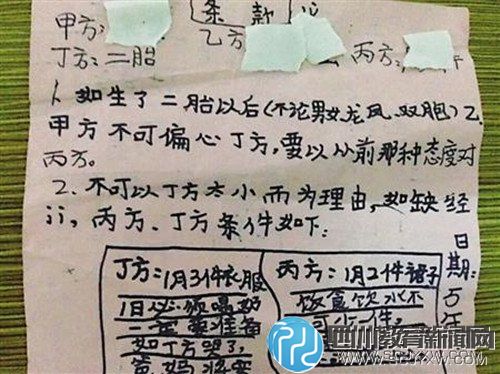 条款
甲方:
乙方
丙方:
丁方:二胎
1、如生了二胎以后(不论男女龙凤、双胞)乙
甲方不可偏心丁方,要以从前那种态度对
丙方。
2、不可以丁方太小而为理由,如缺经
丙方、丁方条件如下:
丁方:1月3件衣服
1日必须喝奶
一定要准备
如丁方哭了
丙方:1月2件裙子
饭盒饮水不
可少一件
日期:
四川教育新闻网